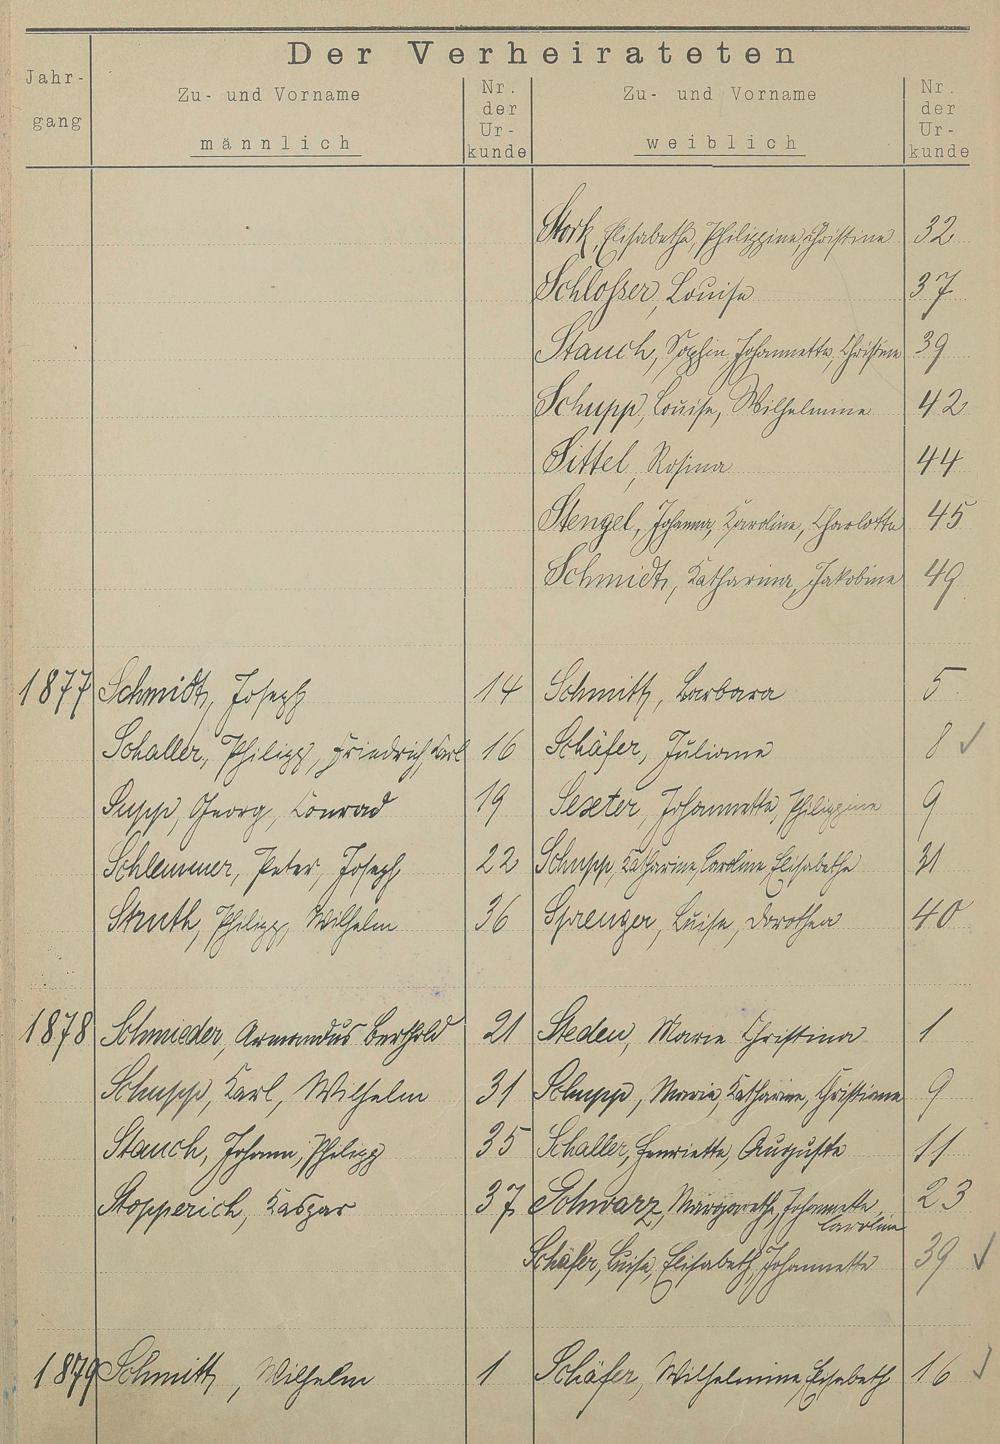 Der Verheirateten
Jahr-
gang
Zu- und Vorname
männlich
Nr.
der
Ur-
kunde
Zu- und Vorname
weiblich
Nr.
der
Ur-
kunde
Stork, Elisabetha, Philippine, Christine 32
Schlosser, Louise 37
Stauch, Sophie, Johannette, Christine 39
Schupp, Louise, Wilhelmine 42
Sittel, Rosina 44
Stengel, Johanna, Karoline, Charlotte 45
Schmidt, Katharina, Jakobine 49
1877 Schmidt, Joseph 14 Schmitt, Barbara 5
Schaller, Philipp, Friedrich, Karl 16 Schäfer, Juliane 8 ✓
Supp, Georg, Conrad 19 Sexeter, Johannette, Philippine 9
Schlemmer, Peter, Joseph 22 Schupp, Katharine, Caroline, Elisabethe 31
Struth, Philipp, Wilhelm 36 Sprenger, Luise, Dorothea 40
1878 Schmieder, Armandus Berthold 21 Steden, Marie Christina 1
Schupp, Karl, Wilhelm 31 Schupp, Marie, Katharine, Christiane 9
Stauch, Johann, Philipp 35 Schaller, Henriette, Auguste 11
Stopperich, Kaspar 37 Schwarz, Margarethe, Johannette, 23
Caroline
Schäfer, Luise, Elisabeth, Johannette 39 ✓
1879 Schmitt, Wilhelm 1 Schäfer, Wilhelmine Elisabeth 16 ✓